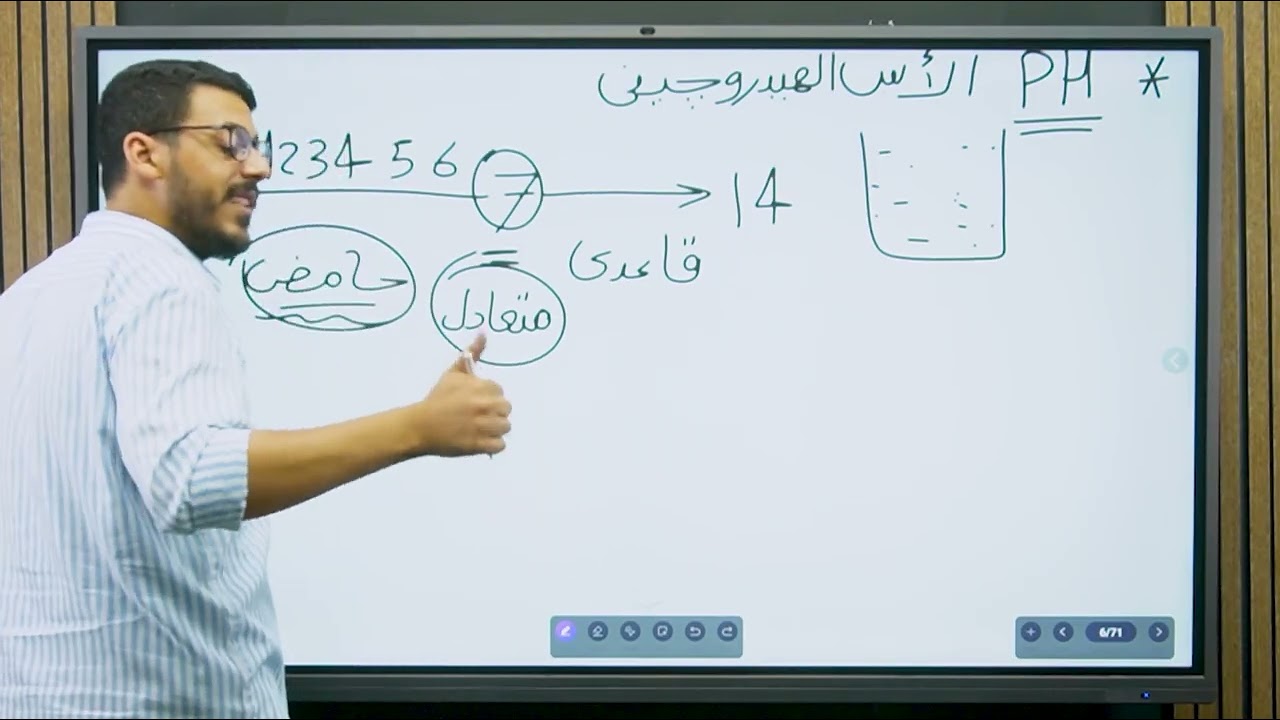 * PH الأس الهيدروچينى
1 2 3 4 5 6 7 14
حامضى متعادل قاعدى
6/71